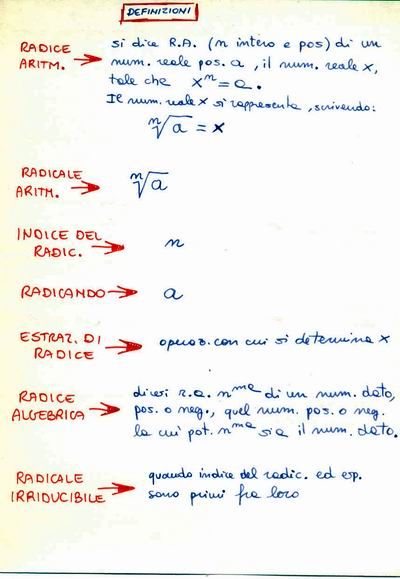 DEFINIZIONI
RADICE
ARITM.
si dice R.A. (n intero e pos) di un
num. reale pos. a, il num. reale x,
tale che xⁿ = a.
Il num. reale x si rappresenta, scrivendo:
ⁿ√a = x
RADICALE
ARITM.
ⁿ√a
INDICE DEL
RADIC.
n
RADICANDO
a
ESTRAZ. DI
RADICE
operaz. con cui si determina x
RADICE
ALGEBRICA
dicesi r.a. nᵐᵃ di un num. dato,
pos. o neg., quel num. pos. o neg.
la cui pot. nᵐᵃ sia il num. dato.
RADICALE
IRRIDUCIBILE
quando indice del radic. ed esp.
sono primi fra loro